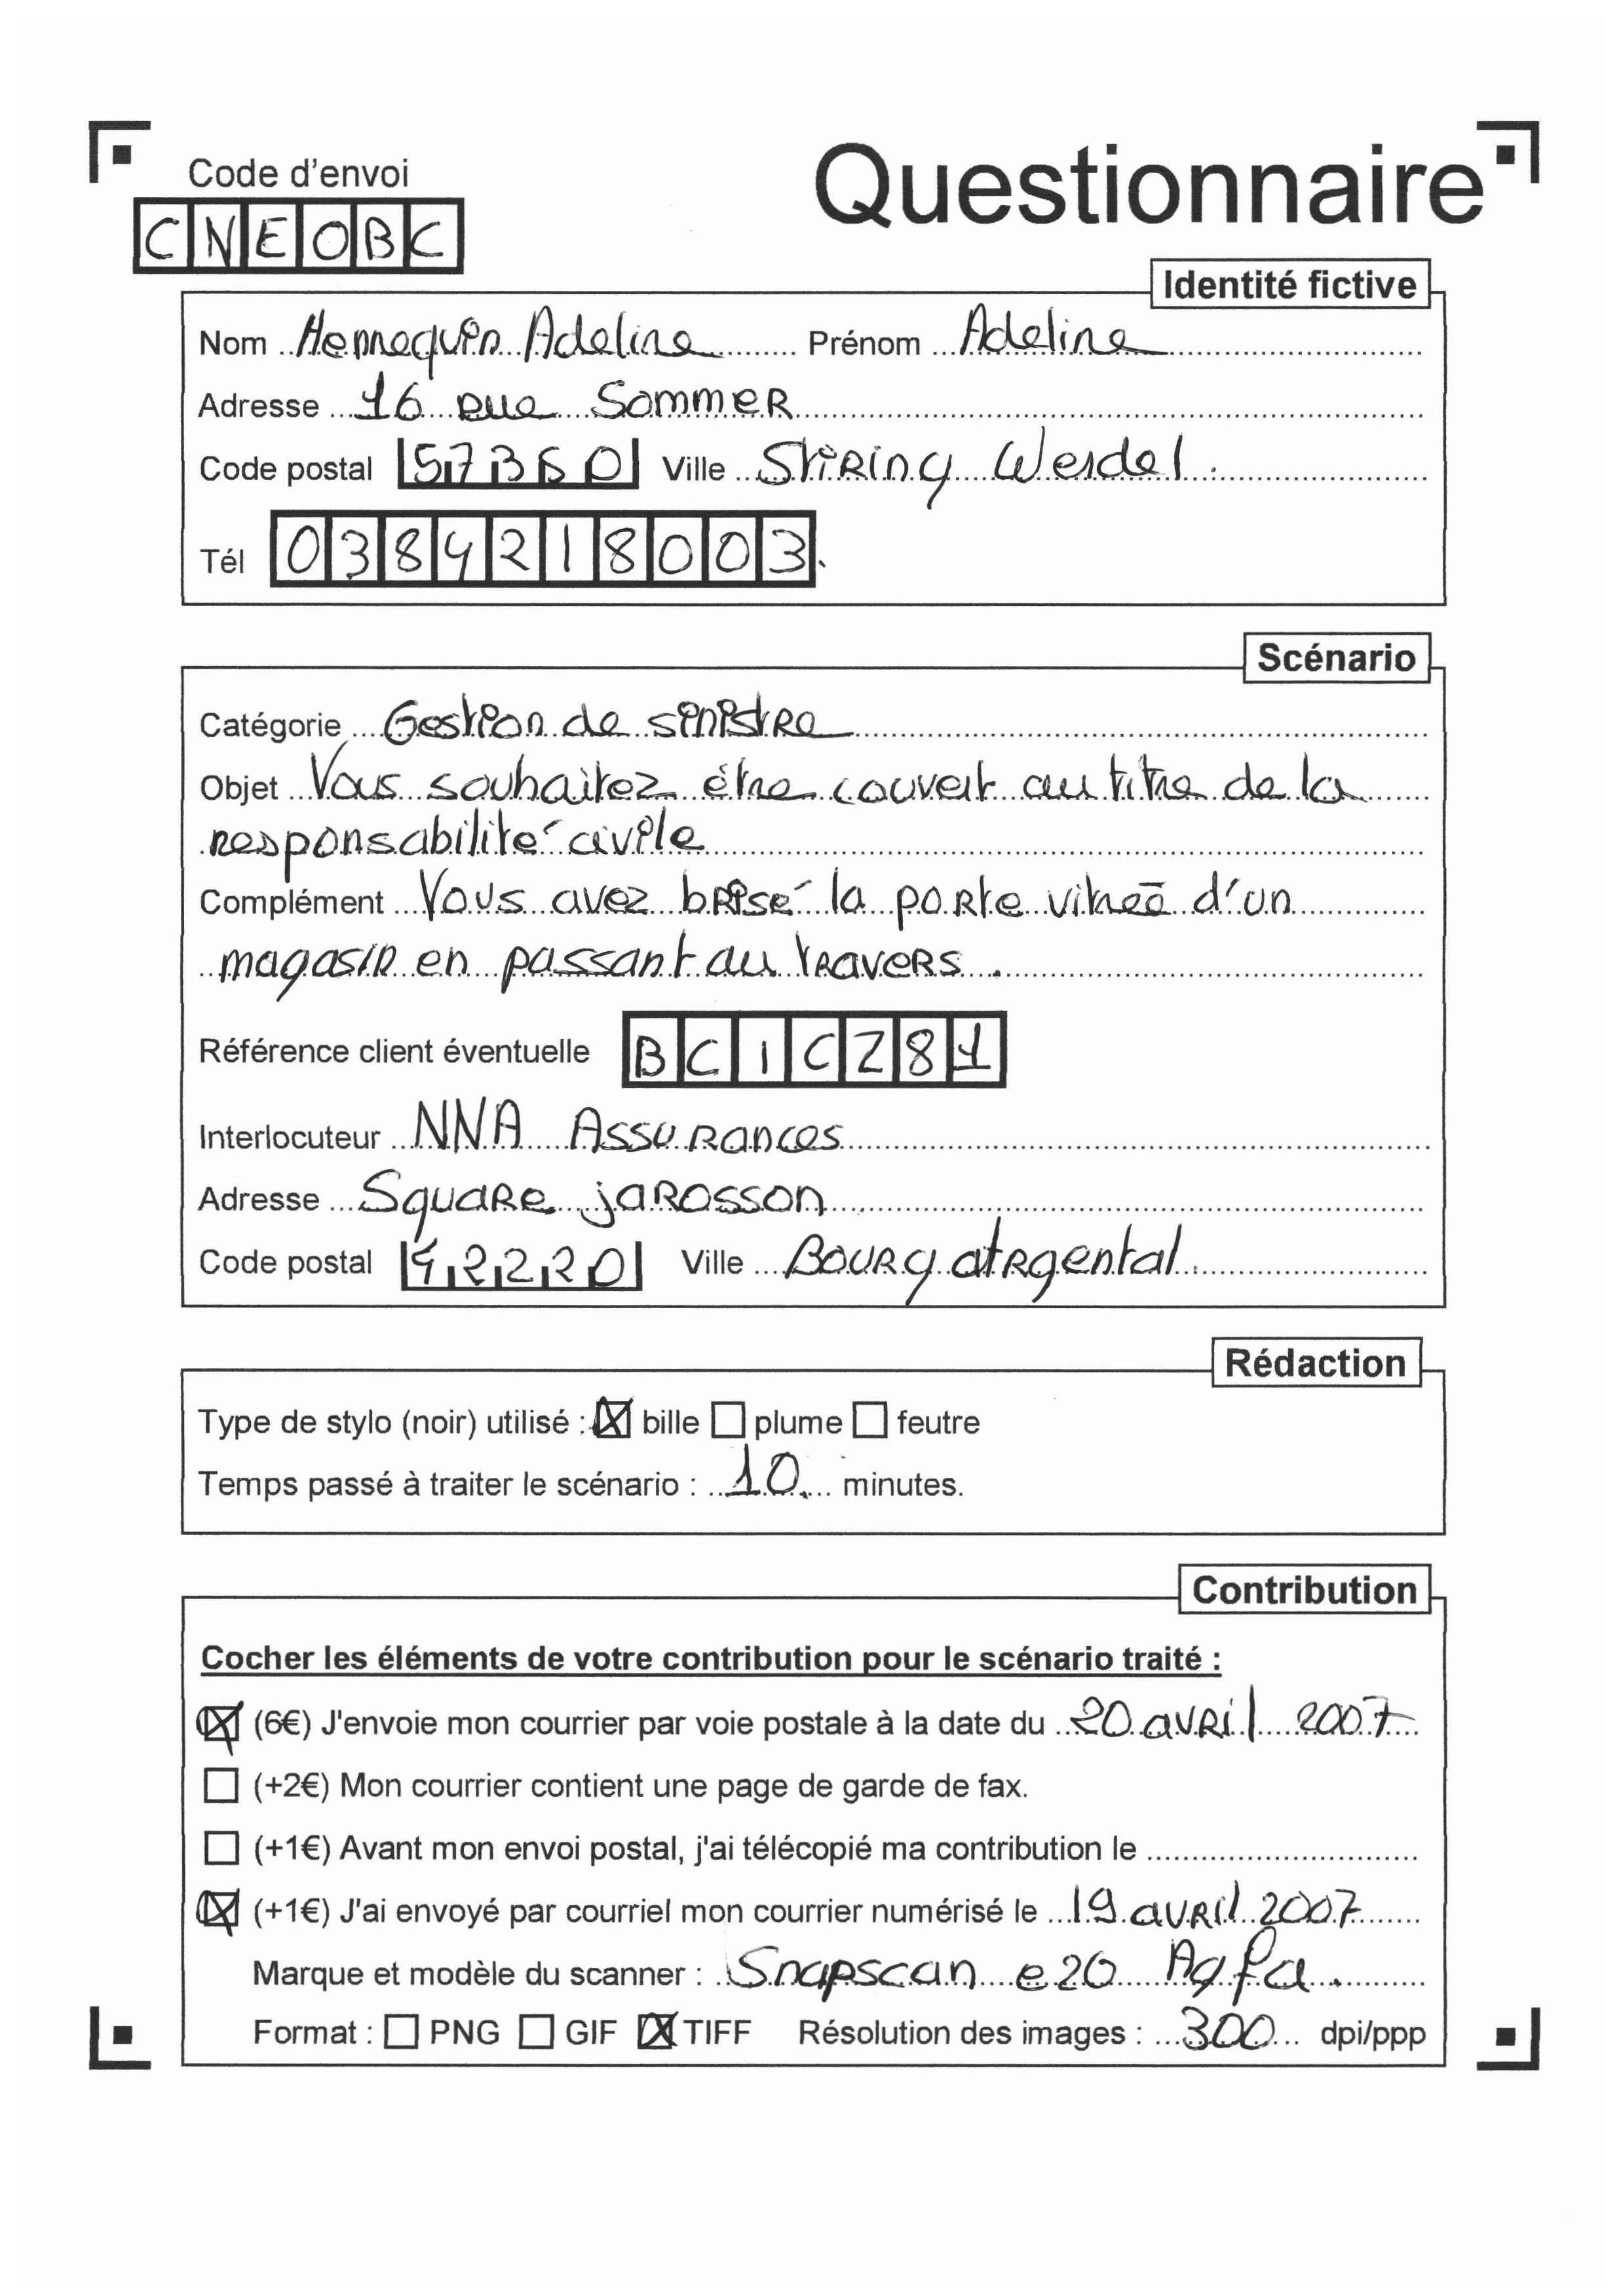 Code d'envoi
Questionnaire
CNEOBC
Identité fictive
Nom Hennequin Adeline Prénom Adeline
Adresse 16 rue Sommer
Code postal 57350 Ville Stiring Wendel.
Tél 0384218003.
Scénario
Catégorie Gestion de sinistre
Objet Vous souhaitez être couvert au titre de la
responsabilité civile
Complément Vous avez brisé la porte vitrée d'un
magasin en passant au travers.
Référence client éventuelle BC1CZ81
Interlocuteur NNA Assurances
Adresse Square jarosson
Code postal 42220 Ville Bourg Argental.
Rédaction
Type de stylo (noir) utilisé : bille plume feutre
Temps passé à traiter le scénario : 10 minutes.
Contribution
Cocher les éléments de votre contribution pour le scénario traité :
(6€) J'envoie mon courrier par voie postale à la date du 20 avril 2007
(+2€) Mon courrier contient une page de garde de fax.
(+1€) Avant mon envoi postal, j'ai télécopié ma contribution le
(+1€) J'ai envoyé par courriel mon courrier numérisé le 19 avril 2007
Marque et modèle du scanner : Snapscan e20 Agfa.
Format : PNG GIF TIFF Résolution des images : 300 dpi/ppp